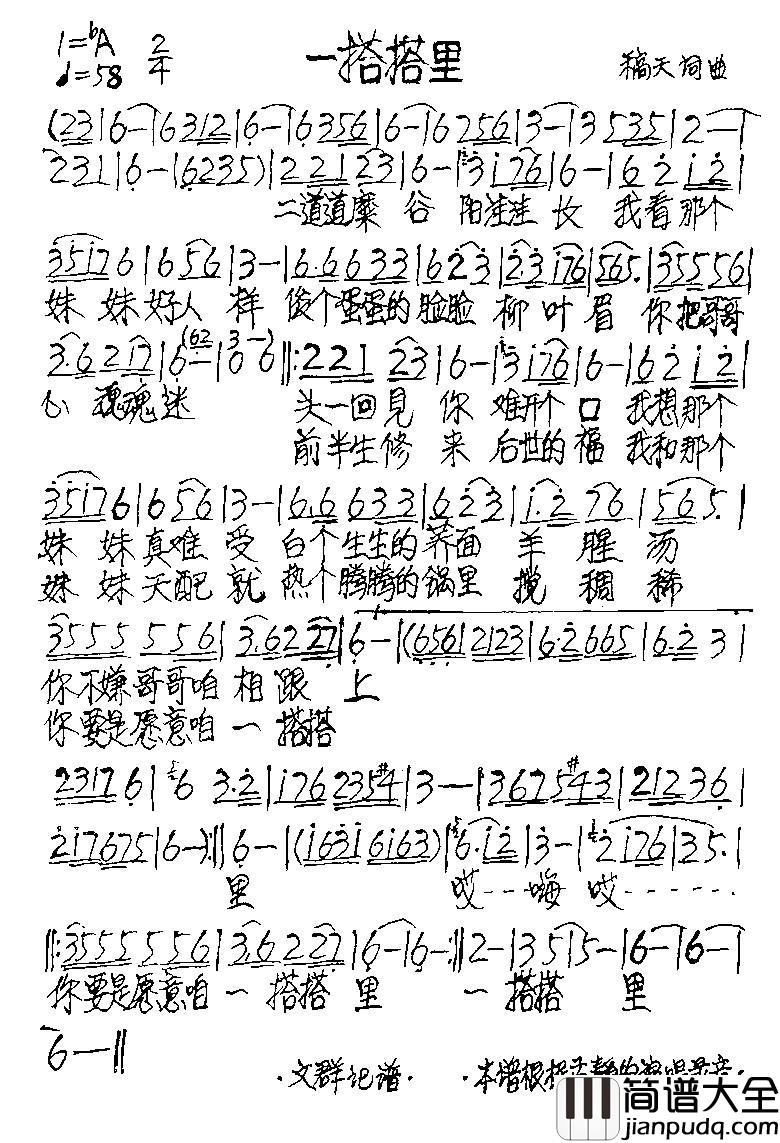 1=♭A 2/4 一搭搭里
♩=58 稿天词曲
(231|6—|6312|6—|6356|6—|67256|3—|3535|2—|
231|6—|6235)|221 23|6—|3 i76|6—|62 i2|
二道道糜 谷 阳洼洼 长 我看那个
35i76|656|3—|6.6633|623|2.3 i76|565.|355556|
妹 妹好人 样 俊个蛋蛋的脸脸 柳叶 眉 你把哥哥
3.62 17|6—|06‖:221 23|6—|3 i76|6—|62 i2|
心 魂魂迷 头一回见 你 难开个 口 我想那个
前半生修 来 后世的福 我和那个
35i76|656|3—|6.6 633|623|i.2 76|565.|
妹 妹真难 受 白个生生的荞面 羊 腥 汤
妹 妹天配 就 热个腾腾的锅里 搅 稠 稀
3555 556|3.62 27|6—|(656 2123|6.2 665|6.2 3|
你不嫌哥哥咱 相 跟 上
你要是愿意咱 一 搭搭
23176|6 3.2|i76 235#4|3—|36725#43|21236|
2i7675|6—):‖6—|(i63i6i63)|6.i2|3—|2 i76|35.|
里 哎----嗨 哎------
‖:3555556|3.62 27|6—|6—:‖2—|35|5—|6—|6—|
你要是愿意咱 一 搭搭 里 一 搭搭 里
6—‖
·文群记谱· ·本谱根据
简谱大全
jianpudq.com